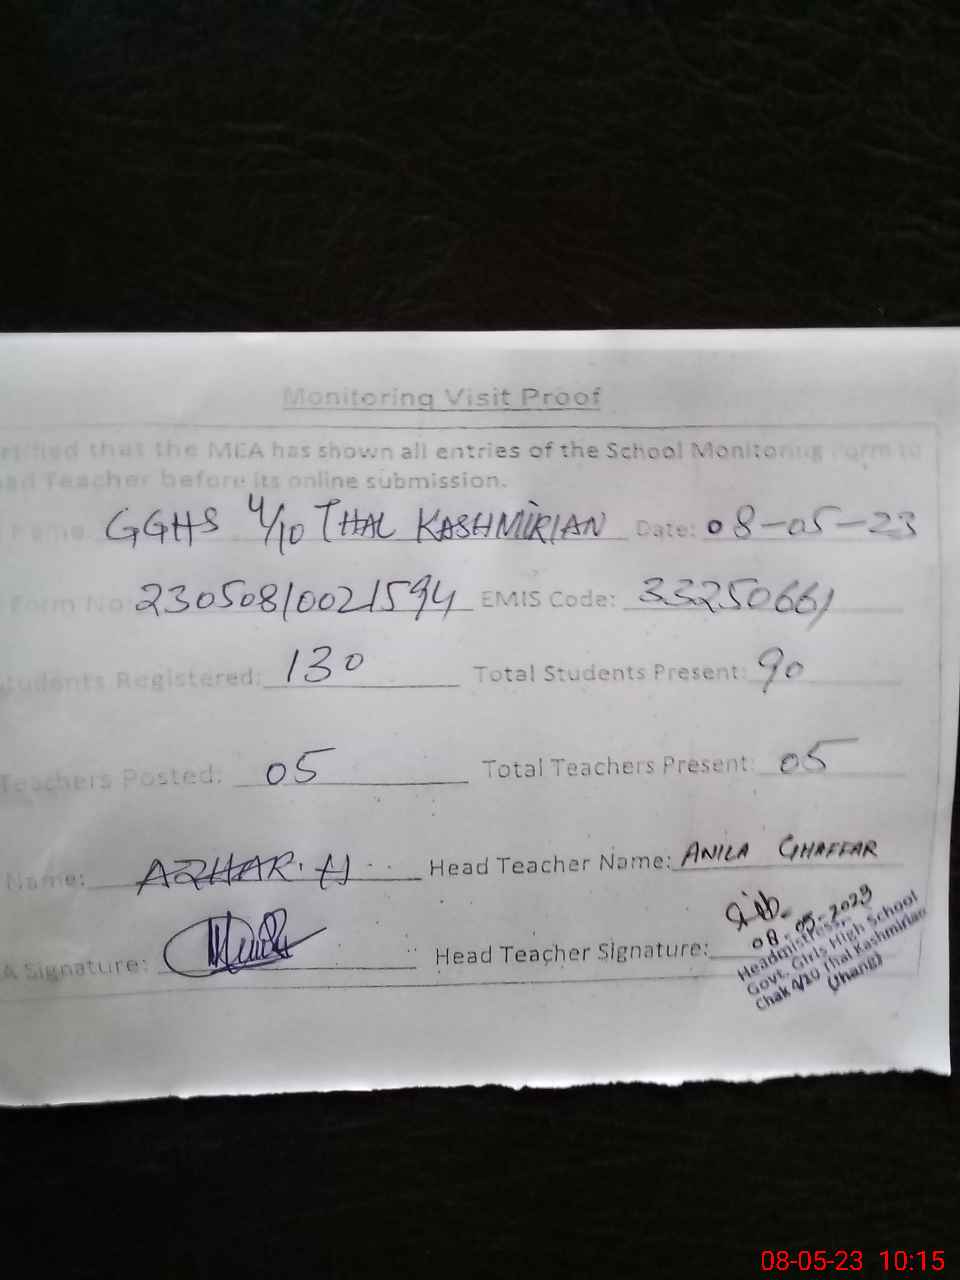 Monitoring Visit Proof
that the MEA has shown all entries of the School Monitoring Form to
Teacher before its online submission.
Name: GGHS 4/10 THAL KASHMIRIAN Date: 08-05-23
Form No: 23050810021594 EMIS Code: 33250661
Students Registered: 130 Total Students Present: 90
Teachers Posted: 05 Total Teachers Present: 05
Name: AZHAR. H Head Teacher Name: ANILA GHAFFAR
A Signature: Head Teacher Signature:
08-05-2023
Headmistress,
Govt. Girls High School
Chak 4/10 Thal Kashmirian
(Jhang)
08-05-23 10:15